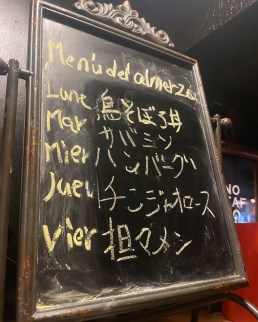 Menú del almerzo
Lune 鳥そぼろ丼
Mar ガパミン
Mier ハンバーグ
Juev チンジャオロース
Vier 担々メン
NO